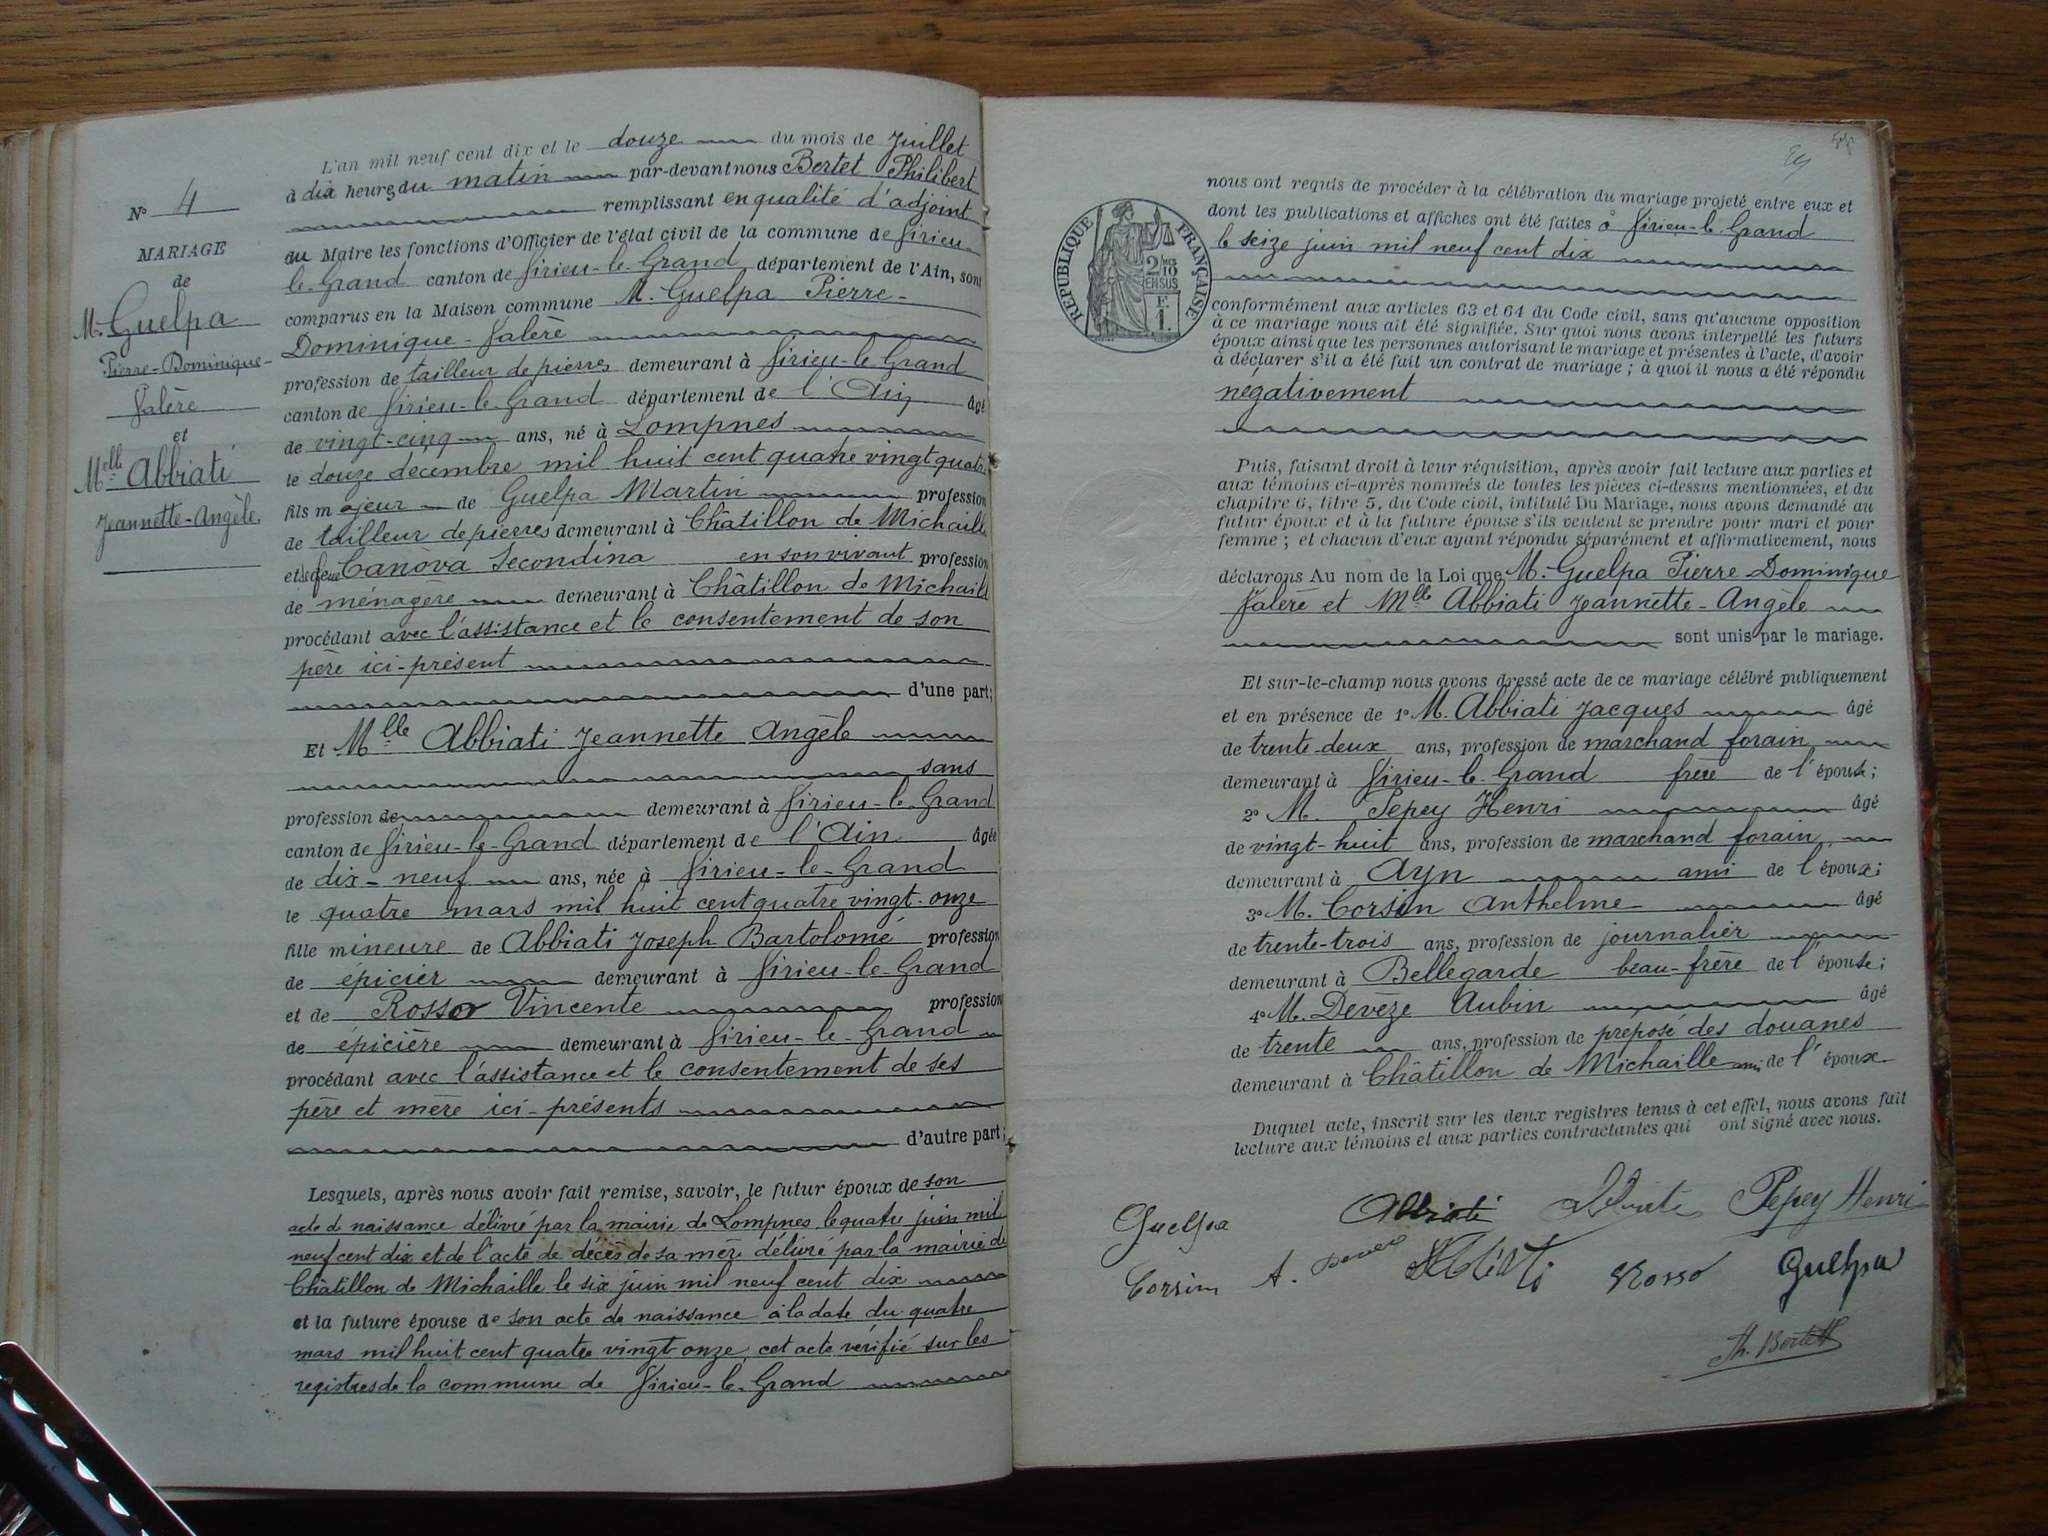 N° 4
MARIAGE
de
M. Guelpa
Pierre-Dominique-
Valère
et
Melle Abbiati
Jeannette-Angèle.
L'an mil neuf cent dix et le douze du mois de Juillet
à dix heures du matin par-devant nous Bertet Philibert
remplissant en qualité d'adjoint
au Maire les fonctions d'Officier de l'état civil de la commune de Virieu-
le-Grand canton de Virieu-le-Grand département de l'Ain, sont
comparus en la Maison commune M. Guelpa Pierre-
Dominique-Valère
profession de tailleur de pierres demeurant à Virieu-le-Grand
canton de Virieu-le-Grand département de l'Ain âgé
de vingt-cinq ans, né à Lompnes
le douze décembre mil huit cent quatre vingt quatre
fils majeur de Guelpa Martin profession
de tailleur de pierres demeurant à Châtillon de Michaille
et de feue Canova Secondina en son vivant profession
de ménagère demeurant à Châtillon de Michaille
procédant avec l'assistance et le consentement de son
père ici-présent
d'une part;
Et Melle Abbiati Jeannette Angèle
sans
profession de demeurant à Virieu-le-Grand
canton de Virieu-le-Grand département de l'Ain âgée
de dix-neuf ans, née à Virieu-le-Grand
le quatre mars mil huit cent quatre vingt-onze
fille mineure de Abbiati Joseph Bartolomé profession
de épicier demeurant à Virieu-le-Grand
et de Rosso Vincente profession
de épicière demeurant à Virieu-le-Grand
procédant avec l'assistance et le consentement de ses
père et mère ici-présents
d'autre part;
Lesquels, après nous avoir fait remise, savoir, le futur époux de son
acte de naissance délivré par la mairie de Lompnes le quatre juin mil
neuf cent dix et de l'acte de décès de sa mère délivré par la mairie de
Châtillon de Michaille le six juin mil neuf cent dix
et la future épouse de son acte de naissance à la date du quatre
mars mil huit cent quatre vingt onze, cet acte vérifié sur les
registres de la commune de Virieu-le-Grand
RÉPUBLIQUE FRANÇAISE
2/10
EN SUS
F.
1.
nous ont requis de procéder à la célébration du mariage projeté entre eux et
dont les publications et affiches ont été faites à Virieu-le-Grand
le seize juin mil neuf cent dix
conformément aux articles 63 et 64 du Code civil, sans qu'aucune opposition
à ce mariage nous ait été signifiée. Sur quoi nous avons interpellé les futurs
époux ainsi que les personnes autorisant le mariage et présentes à l'acte, d'avoir
à déclarer s'il a été fait un contrat de mariage; à quoi il nous a été répondu
négativement
Puis, faisant droit à leur réquisition, après avoir fait lecture aux parties et
aux témoins ci-après nommés de toutes les pièces ci-dessus mentionnées, et du
chapitre 6, titre 5, du Code civil, intitulé Du Mariage, nous avons demandé au
futur époux et à la future épouse s'ils veulent se prendre pour mari et pour
femme; et chacun d'eux ayant répondu séparément et affirmativement, nous
déclarons Au nom de la Loi que M. Guelpa Pierre Dominique
Valère et Melle Abbiati Jeannette-Angèle
sont unis par le mariage.
Et sur-le-champ nous avons dressé acte de ce mariage célébré publiquement
et en présence de 1° M. Abbiati Jacques âgé
de trente-deux ans, profession de marchand forain
demeurant à Virieu-le-Grand frère de l'épouse;
2° M. Pepey Henri âgé
de vingt-huit ans, profession de marchand forain
demeurant à Ayn ami de l'époux;
3° M. Corsin Anthelme âgé
de trente-trois ans, profession de journalier
demeurant à Bellegarde beau-frère de l'épouse;
4° M. Devèze Aubin âgé
de trente ans, profession de préposé des douanes
demeurant à Châtillon de Michaille ami de l'époux
Duquel acte, inscrit sur les deux registres tenus à cet effet, nous avons fait
lecture aux témoins et aux parties contractantes qui ont signé avec nous.
Guelpa Abbiati Abbiati Pepey Henri
Corsin A. Deveze Abbiati Rosso Guelpa
Ph. Bertet